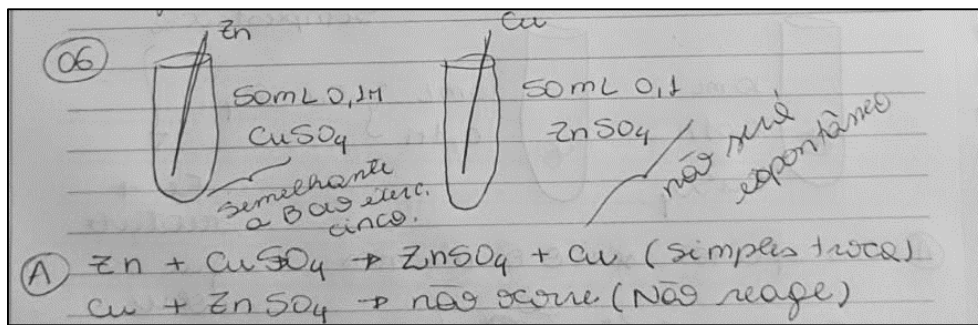 06
Zn
50mL 0,1M
CuSO4
semelhante
a B do exerc.
cinco.
Cu
50 mL 0,1
ZnSO4
não será
espontâneo
A Zn + CuSO4 → ZnSO4 + Cu (simples troca)
Cu + ZnSO4 → não ocorre (Não reage)